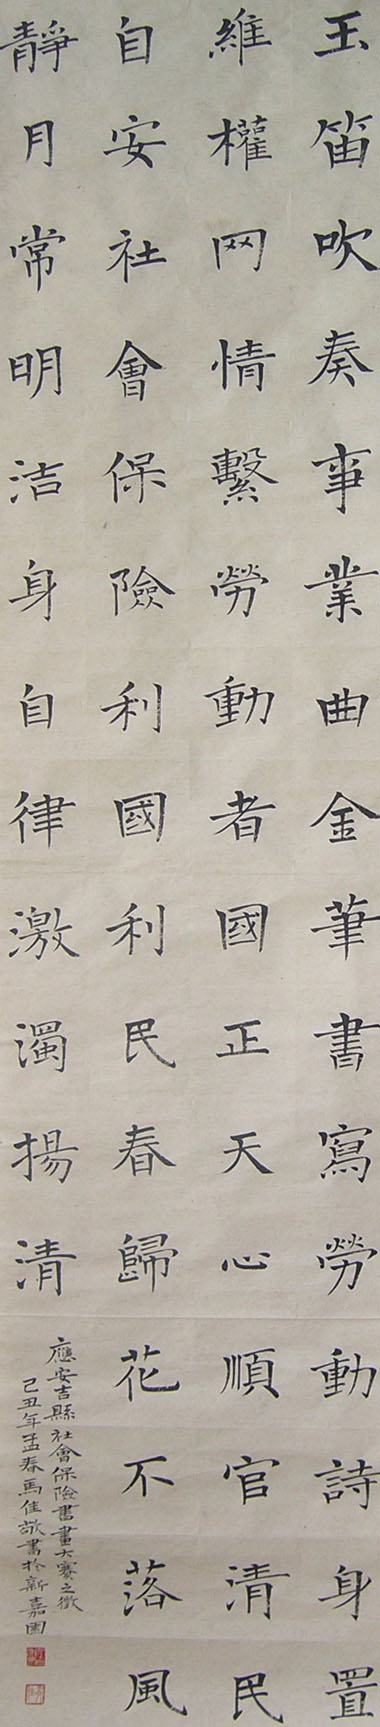 玉笛吹奏事業曲金筆書寫勞動詩身置
維權网情繫勞動者國正天心順官清民
自安社會保險利國利民春歸花不落風
靜月常明洁身自律激濁揚清
應安吉縣社會保險書畫大賽之徵
己丑年孟春馬佳敬書於新嘉園